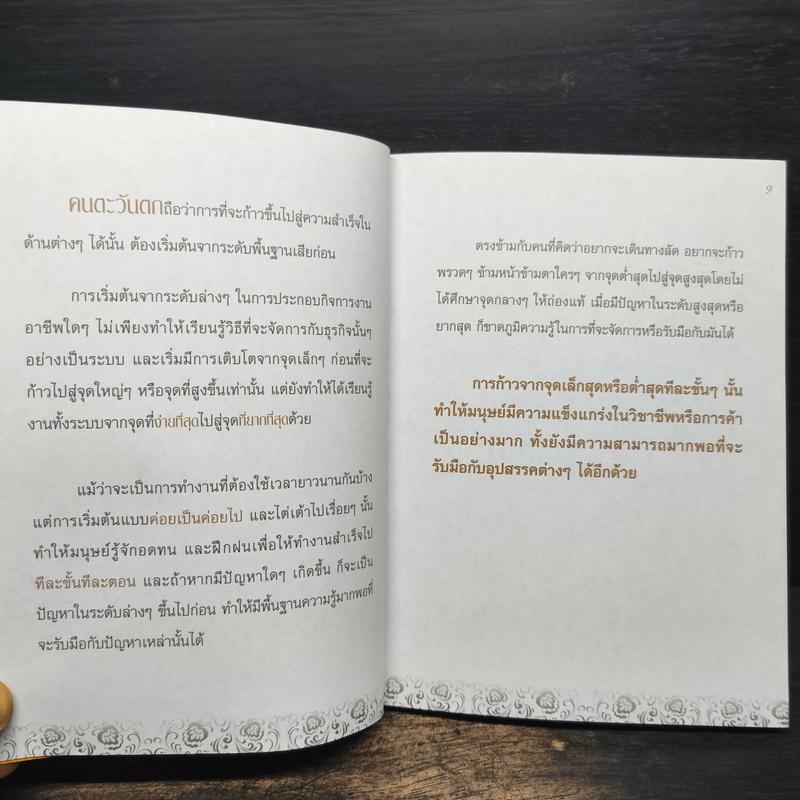 คนตะวันตกถือว่าการที่จะก้าวขึ้นไปสู่ความสำเร็จใน
ด้านต่างๆ ได้นั้น ต้องเริ่มต้นจากระดับพื้นฐานเสียก่อน
การเริ่มต้นจากระดับล่างๆ ในการประกอบกิจการงาน
อาชีพใดๆ ไม่เพียงทำให้เรียนรู้วิธีที่จะจัดการกับธุรกิจนั้นๆ
อย่างเป็นระบบ และเริ่มมีการเติบโตจากจุดเล็กๆ ก่อนที่จะ
ก้าวไปสู่จุดใหญ่ๆ หรือจุดที่สูงขึ้นเท่านั้น แต่ยังทำให้ได้เรียนรู้
งานทั้งระบบจากจุดที่ง่ายที่สุดไปสู่จุดที่ยากที่สุดด้วย
แม้ว่าจะเป็นการทำงานที่ต้องใช้เวลายาวนานกันบ้าง
แต่การเริ่มต้นแบบค่อยเป็นค่อยไป และไต่เต้าไปเรื่อยๆ นั้น
ทำให้มนุษย์รู้จักอดทน และฝึกฝนเพื่อให้ทำงานสำเร็จไป
ทีละขั้นทีละตอน และถ้าหากมีปัญหาใดๆ เกิดขึ้น ก็จะเป็น
ปัญหาในระดับล่างๆ ขึ้นไปก่อน ทำให้มีพื้นฐานความรู้มากพอที่
จะรับมือกับปัญหาเหล่านั้นได้
9
ตรงข้ามกับคนที่คิดว่าอยากจะเดินทางลัด อยากจะก้าว
พรวดๆ ข้ามหน้าข้ามตาใครๆ จากจุดต่ำสุดไปสู่จุดสูงสุดโดยไม่
ได้ศึกษาจุดกลางๆ ให้ถ่องแท้ เมื่อมีปัญหาในระดับสูงสุดหรือ
ยากสุด ก็ขาดภูมิความรู้ในการที่จะจัดการหรือรับมือกับมันได้
การก้าวจากจุดเล็กสุดหรือต่ำสุดทีละขั้นๆ นั้น
ทำให้มนุษย์มีความแข็งแกร่งในวิชาชีพหรือการค้า
เป็นอย่างมาก ทั้งยังมีความสามารถมากพอที่จะ
รับมือกับอุปสรรคต่างๆ ได้อีกด้วย